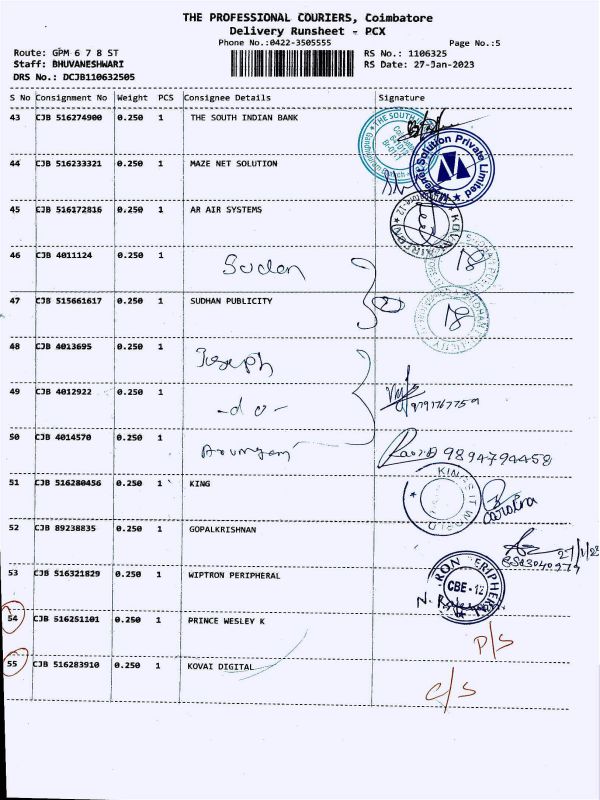 THE PROFESSIONAL COURIERS, Coimbatore
Delivery Runsheet - PCX
Phone No.:0422-3505555
Page No.:5
Route: GPM 6 7 8 ST
RS No.: 1106325
Staff: BHUVANESHWARI
RS Date: 27-Jan-2023
DRS No.: DCJB110632505
S No Consignment No Weight PCS Consignee Details Signature
43 CJB 516274900 0.250 1 THE SOUTH INDIAN BANK
44 CJB 516233321 0.250 1 MAZE NET SOLUTION
45 CJB 516172816 0.250 1 AR AIR SYSTEMS
46 CJB 4011124 0.250 1 Sudan 18
47 CJB 515661617 0.250 1 SUDHAN PUBLICITY 2 18
48 CJB 4013695 0.250 1 Joseph
49 CJB 4012922 0.250 1 -do-
50 CJB 4014570 0.250 1 9894794458
51 CJB 516280456 0.250 1 KING
KING IT WORLD
Carolina
52 CJB 89238835 0.250 1 GOPALKRISHNAN
53 CJB 516321829 0.250 1 WIPTRON PERIPHERAL
CBE-12
54 CJB 516251101 0.250 1 PRINCE WESLEY K P/S
55 CJB 516283910 0.250 1 KOVAI DIGITAL C/S